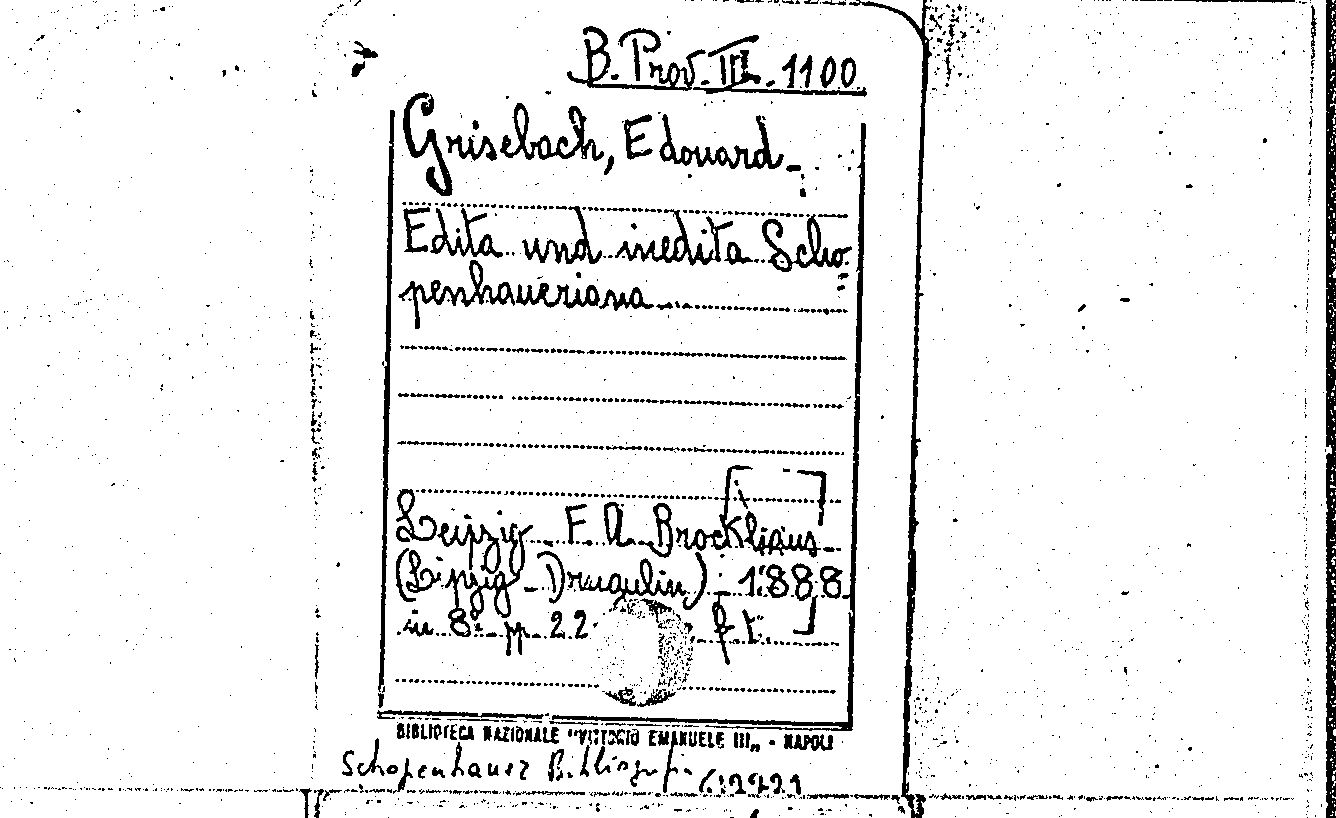 B. Prov. III. 1100
Grisebach, Edouard-
Edita und inedita Scho-
penhaueriana
Leipzig - F. A. Brockhaus -
(Lipzig - Drugulin) - 1888
in 8° pp. 22 f. t.
BIBLIOTECA NAZIONALE "VITTORIO EMANUELE III„ - NAPOLI
Schopenhauer Bibliografia